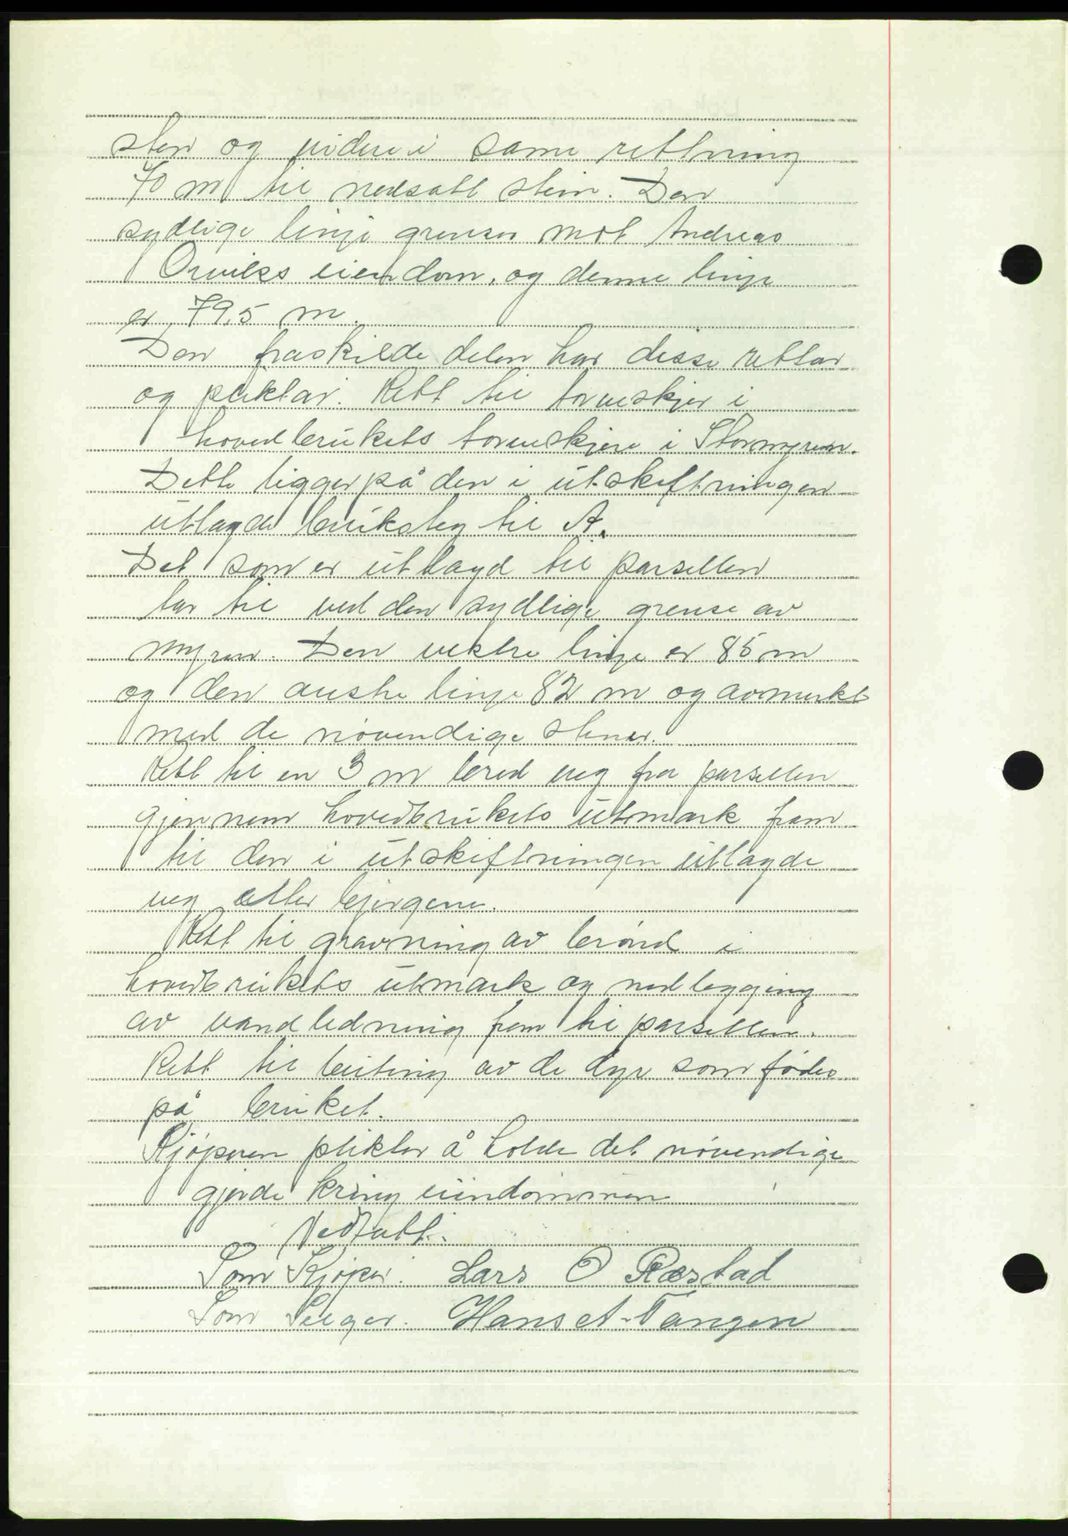 sten og videre i same rettning
70 m til nedsatt stein. Den
sydlige linje grenser mot Andreas
Orvikss eiendom, og denne linje
er 79,5 m.
Den fraskilde delen har disse rettar
og pliktar. Rett til torveskjer i
hovedbrukets torveskjere i Stormyren.
Dette ligger på den i utskiftningen
utlagde bruksteg til A.
Det som er utlagd til parsellen
tar til ved den sydlige grense av
myren. Den vestre linje er 85 m
og den austre linje 82 m og avmerkt
med de nøvendige stener.
Rett til en 3 m bred veg fra parsellen
gjennem hovedbrukets utmark fram
til den i utskiftningen utlagde
veg etter bjergene.
Rett til gravning av brønd i
hovedbrukets utmark og nedlegging
av vandledning fram til parsellen.
Rett til beiting av de dyr som fødes
på bruket.
Kjøperen plikter å holde det nøvendige
gjerde kring eiendommen
Vedtatt.
Som Kjøper. Lars O Ræstad
Som Selger. Hans A. Tangen